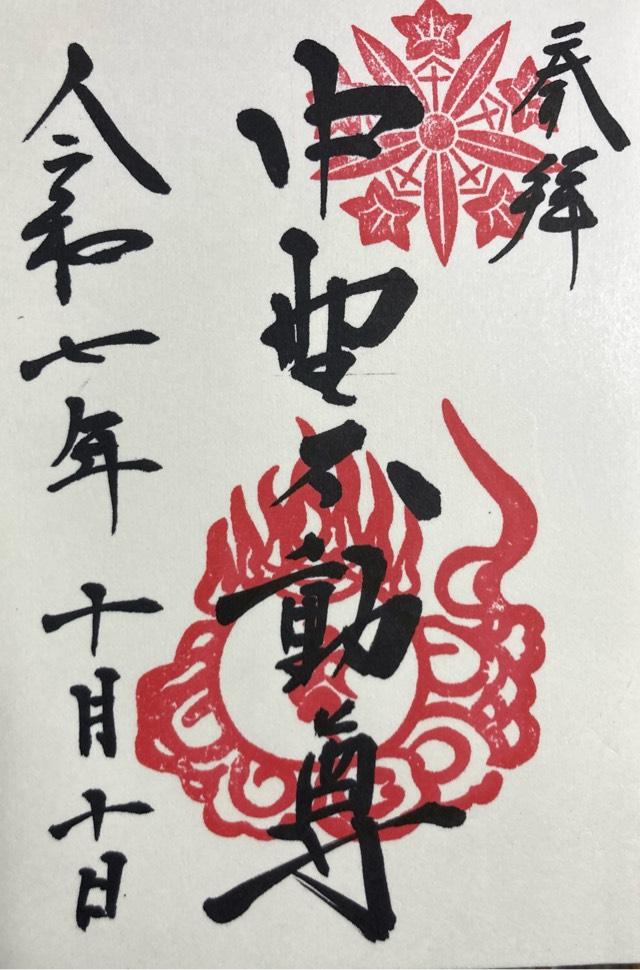 奉拝
中野不動尊
令和七年十月十日